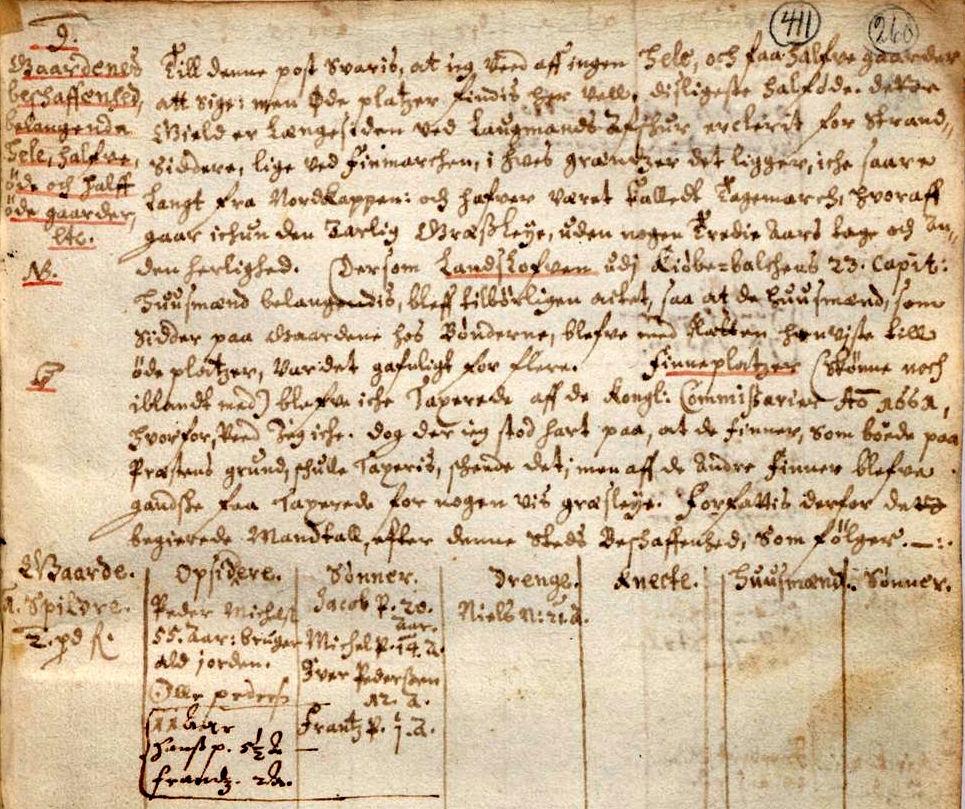 9.
411
260
Gaardenes
beschaffenhed,
belangende
hele, halfve,
øde och halff
øde gaarder,
etc.
NB.
Till denne post Svaris, at ieg veed aff ingen hele, och faa halfve gaarder
att sige: men Øde platzer findis her vell, disligeste halføde. dette
Gield er længesiden ved Laugmands Afschur erclerit for Strand,,
Siddere, lige ved Finmarchen, i hves grændtzer det ligger, iche saare
langt fra Nordkappen: och hafver været kalledt hvoraff
gaar ichun den Aarlig Græssleye, uden nogen Tredie Aars tage och An,,
den herlighed. Dersom Landslofven udj Kiøbe-balchens 23. Capit:
Huusmænd belangendis, bleff tilbørligen actet, saa at de huusmænd, som
Sidder paa Gaardene hos Bønderne, blefve med Rætten henviste till
øde platzer, var det gafnligt for flere. Finneplatzer (Skønne noch
iblandt med) blefve iche Taxerede aff de Kongl: Commissarier Ao 1661,
hvorfor, Veed Jeg iche. dog der ieg stod hart paa, at de finner, som boede paa
Præstens grund, schulle Taxeris, scheede det; men aff de Andre finner blefve
gandske faa Taxerede for nogen vis græsleye. Forfattis derfor dette
begierede Mandtall, efter denne Steds Beschaffenhed, Som følger. —:.
Gaarde. Opsidere. Sønner. Drenge. Knecte. Huusmænd. Sønner.
1. Spildre.
2. pd
Peder Michels
55. Aar: bruger
ald jorden.
Olle peders
11 Aar
Hans p. 5½ A
frandz. 2 A.
Jacob P. 20.
Aar.
Michel P. 14. A.
Iver Pedersen
12. A.
Frantz P. 1. A.
Niels N: 21. A.